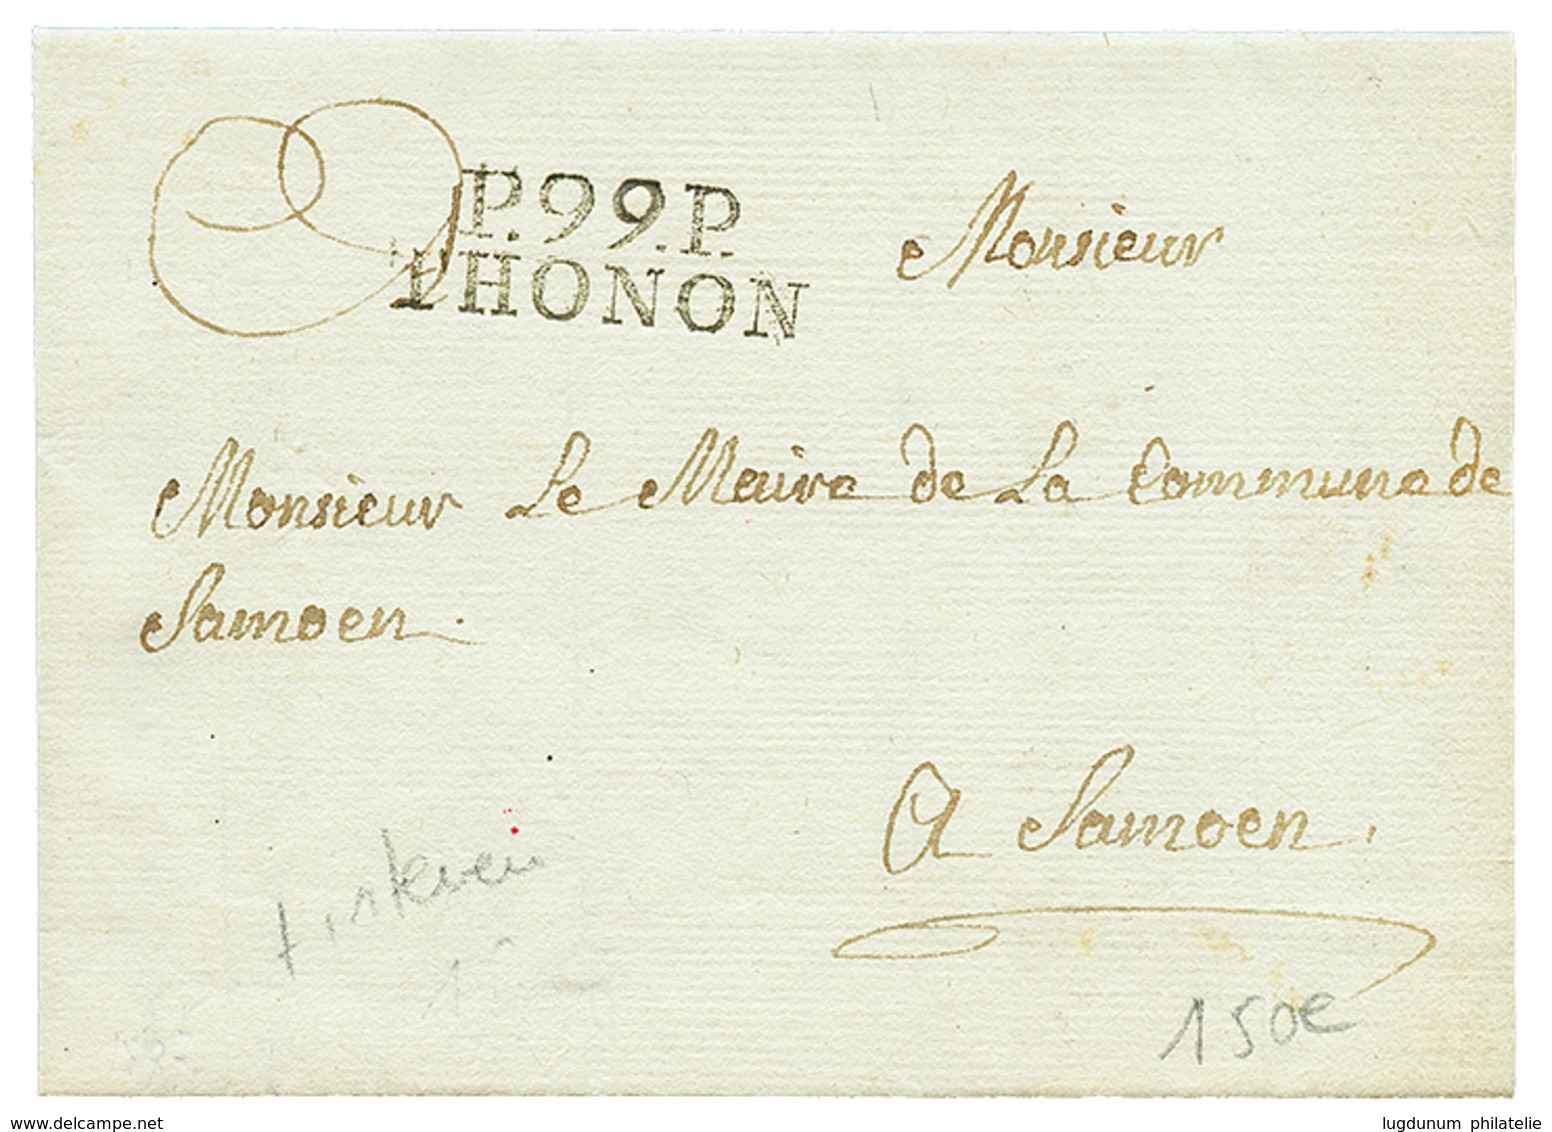 P.99.P.
THONON
Monsieur
Monsieur Le Maire de La Commune de
Samoen.
A Samoen.
150e
www.delcampe.net
lugdunum philatelie